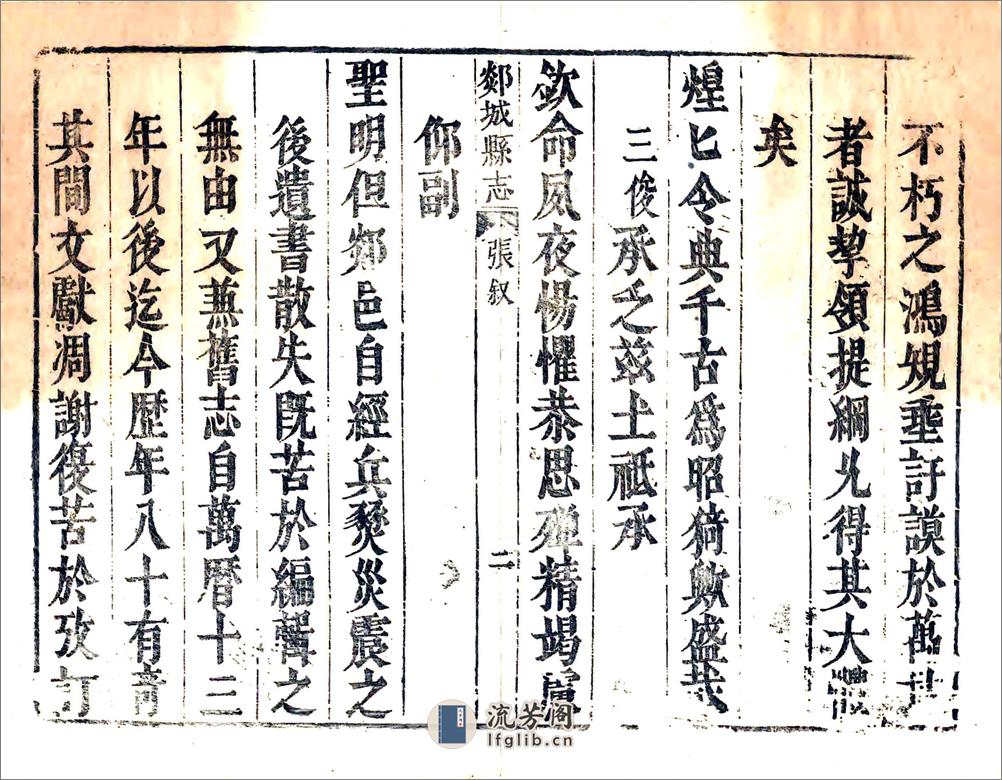 不朽之鴻規垂訏謨於萬世
者誠挈領提綱允得其大體
矣
煌匕令典千古爲昭猗歟盛哉
三俊承乏茲土祗承
欽命夙夜惕懼恭思殫精竭
郯城縣志 張叙 二
仰副
聖明但郯邑自經兵燹災震之
後遺書散失既苦於編輯之
無由又兼舊志自萬曆十三
年以後迄今歴年八十有奇
其間文獻凋謝復苦於攷訂
流芳阁
lfglib.cn